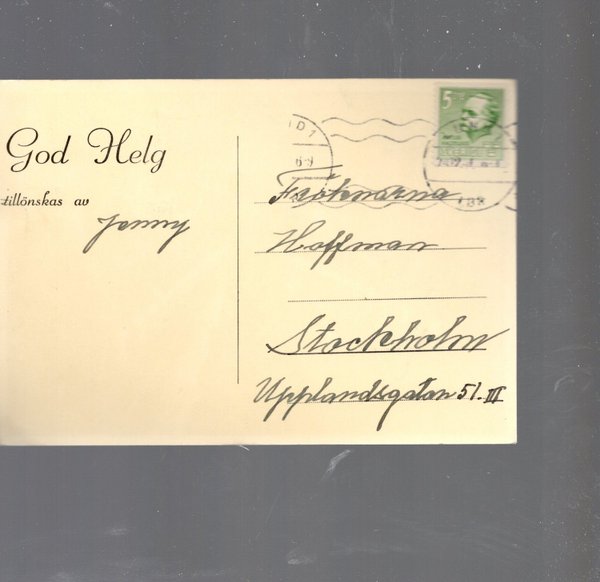 God Helg
tillönskas av
Jenny
5
SVERIGE
Fröknarna
Hoffman
Stockholm
Upplandsgatan 51. III